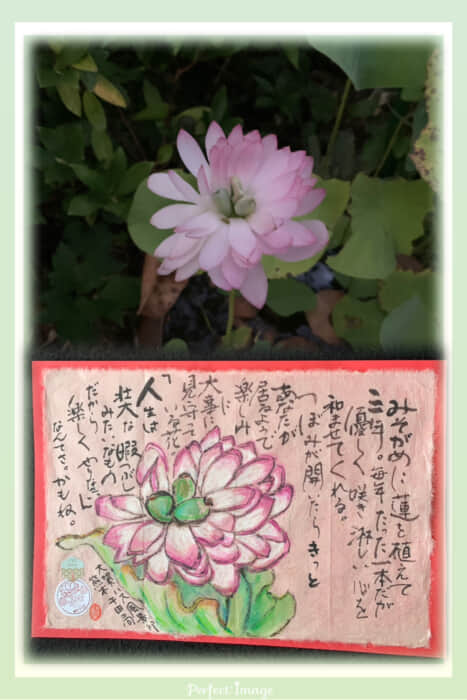 みそがめに蓮を植えて
三年。毎年たった一本だが
優しく咲き淋しい心を
和ませてくれる。
つぼみが開いたらきっと
あなたが
居るようで
楽しみ
に
大事に
見守って
いる花
「人生は
壮大な暇つぶし
みたいなもの
だから
楽しくやりなよ」
なんてさ。かもね。
Perfect Image